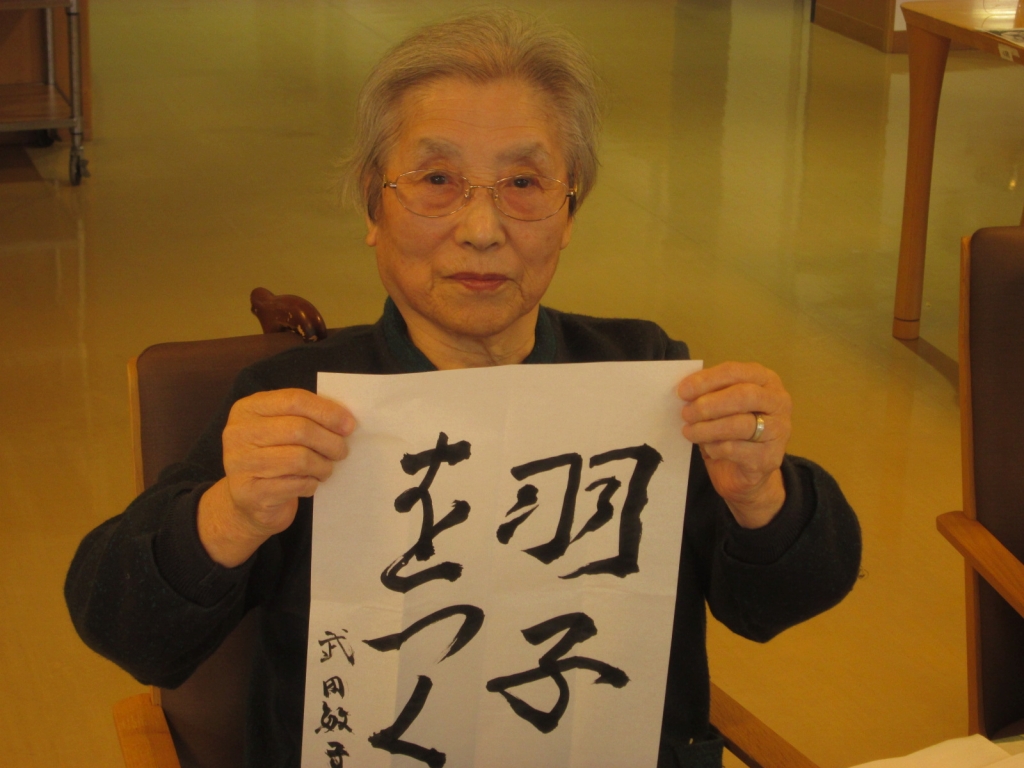 羽子
をつく
武田敏子